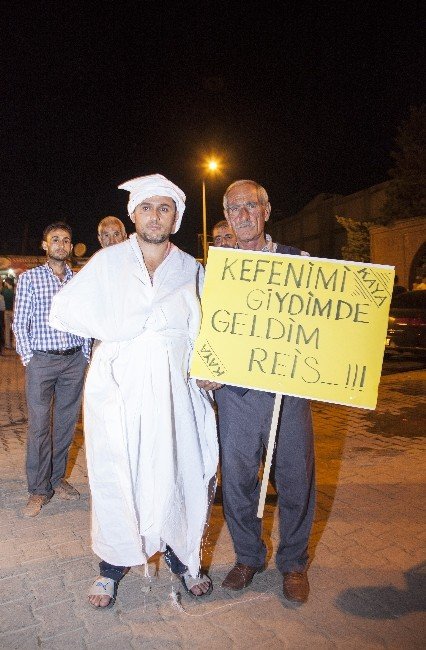 KEFENİMİ
GİYDİMDE
GELDİM
REİS...!!!
KAYA
KAYA